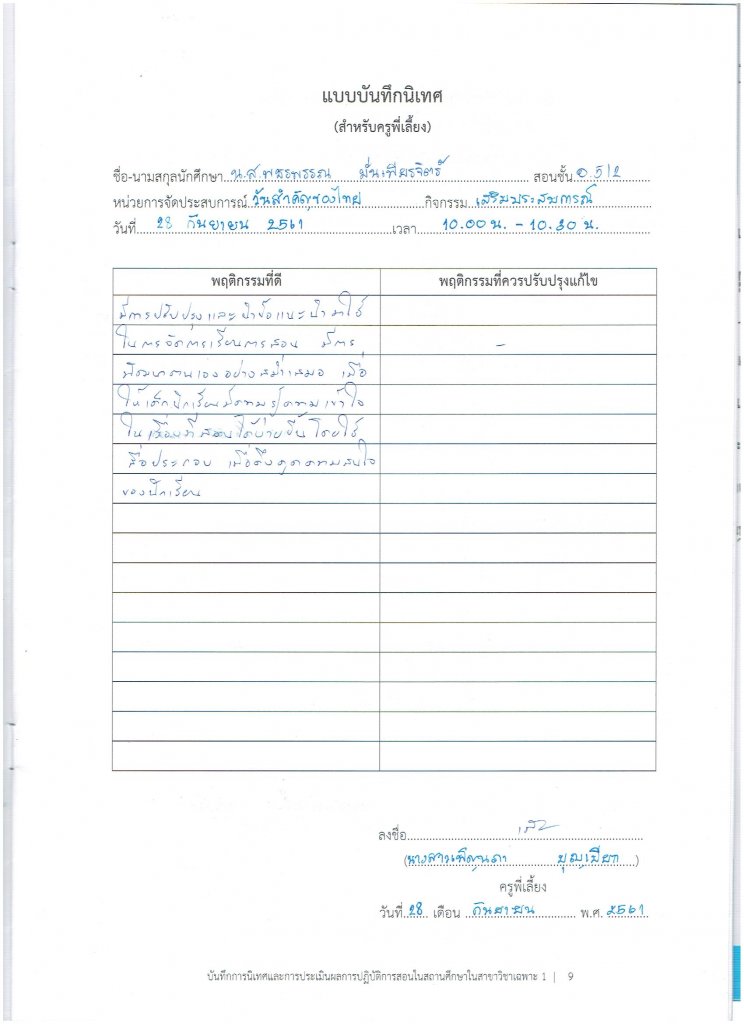 แบบบันทึกนิเทศ
(สำหรับครูพี่เลี้ยง)
ชื่อ-นามสกุลนักศึกษา น.ส.พชรพรรณ มั่นเพียรจิตร์ สอนชั้น อ.5/2
หน่วยการจัดประสบการณ์ วันสำคัญของไทย กิจกรรม เสริมประสบการณ์
วันที่ 28 กันยายน 2561 เวลา 10.00 น. - 10.30 น.
พฤติกรรมที่ดี พฤติกรรมที่ควรปรับปรุงแก้ไข
มีการปรับปรุงและนำข้อแนะนำมาใช้
ในการจัดการเรียนการสอน มีการ -
พัฒนาตนเองอย่างสม่ำเสมอ เพื่อ
ให้เด็กนักเรียนมีความรู้ความเข้าใจ
ในเรื่องที่สอนได้ง่ายขึ้น โดยใช้
สื่อประกอบ เพื่อดึงดูดความสนใจ
ของนักเรียน
ลงชื่อ
(นางสาวเพ็ญนภา บุญเปียก)
ครูพี่เลี้ยง
วันที่ 28 เดือน กันยายน พ.ศ. 2561
บันทึกการนิเทศและการประเมินผลการปฏิบัติการสอนในสถานศึกษาในสาขาวิชาเฉพาะ 1 | 9